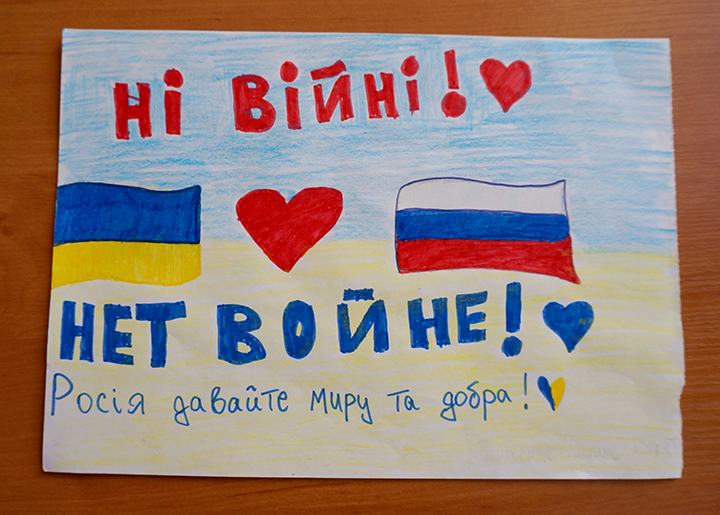 НІ ВІЙНІ!
НЕТ ВОЙНЕ!
Росія давайте миру та добра!